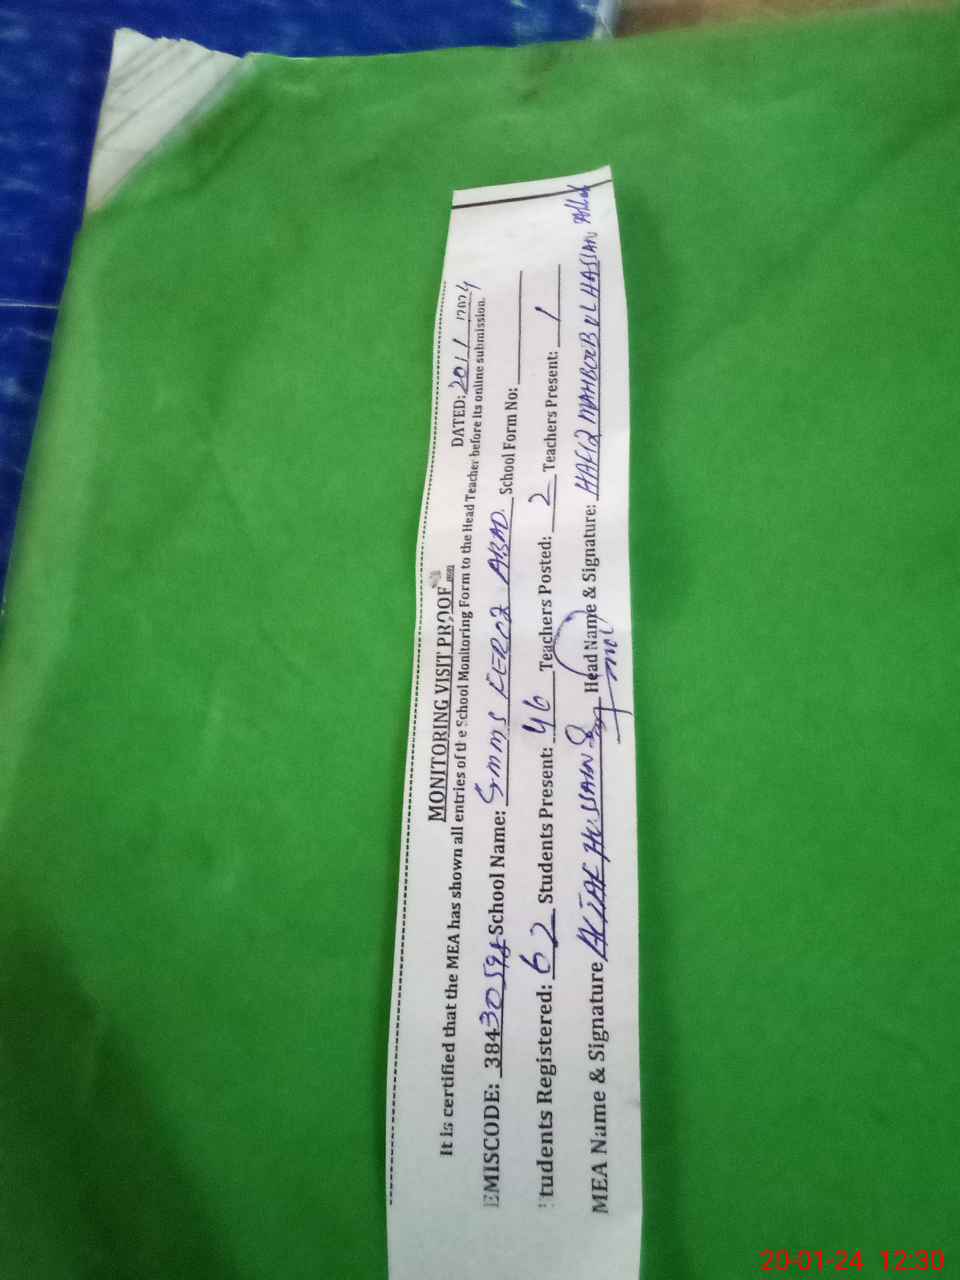 MONITORING VISIT PROOF
DATED: 20/1/2024
It is certified that the MEA has shown all entries of the School Monitoring Form to the Head Teacher before its online submission.
EMISCODE: 38430 School Name: GMMS FEROZ ABAD School Form No:
Students Registered: 62 Students Present: 46 Teachers Posted: 2 Teachers Present: 1
MEA Name & Signature HUSSAIN Head Name & Signature: HAFIZ MAHBOOB UL HASSAN
20-01-24 12:30